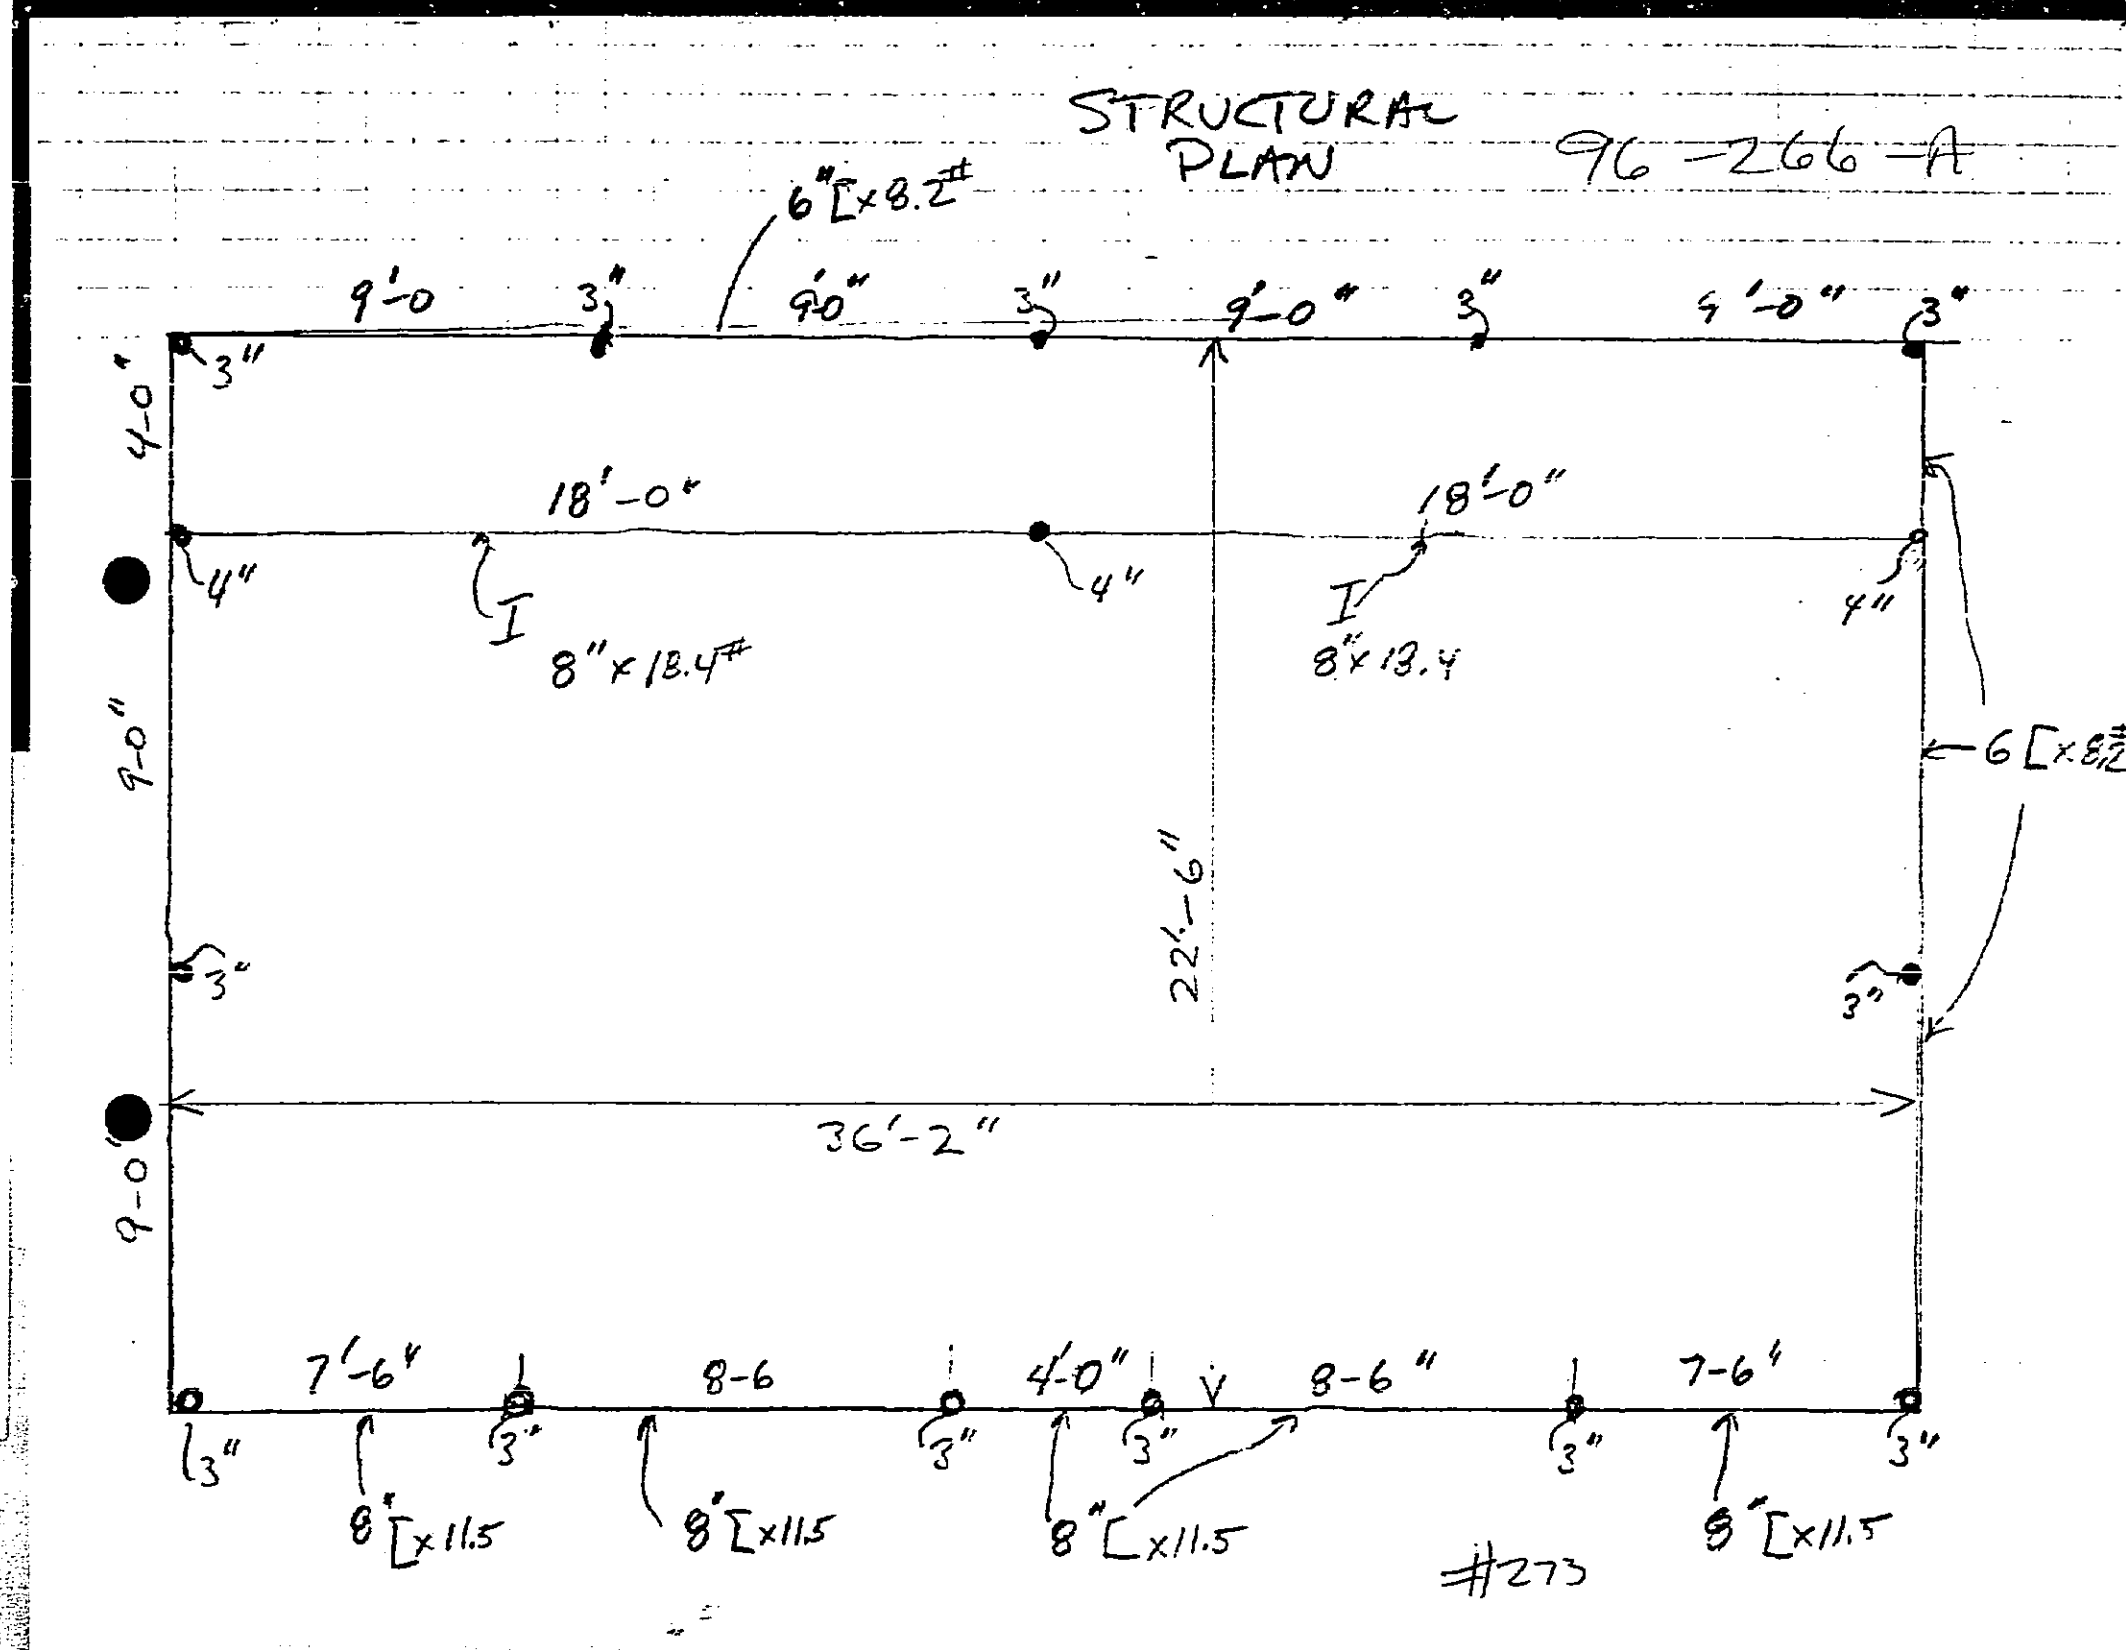 STRUCTURAL
PLAN
96-266-A
6"[x8.2#
9'-0 3" 9'0" 3" 9'-0" 3" 9'-0" 3"
3"
4-0"
18'-0" 18'-0"
4" 4" 4"
I I
8"x18.4# 8"x18.4
9-0"
6[x8.2#
22'-6"
3" 3"
36'-2"
9-0"
7'-6" 8-6 4'-0" 8-6" 7-6"
3" 3" 3" 3" 3" 3"
8"[x11.5 8"[x11.5 8"[x11.5 8"[x11.5
#273